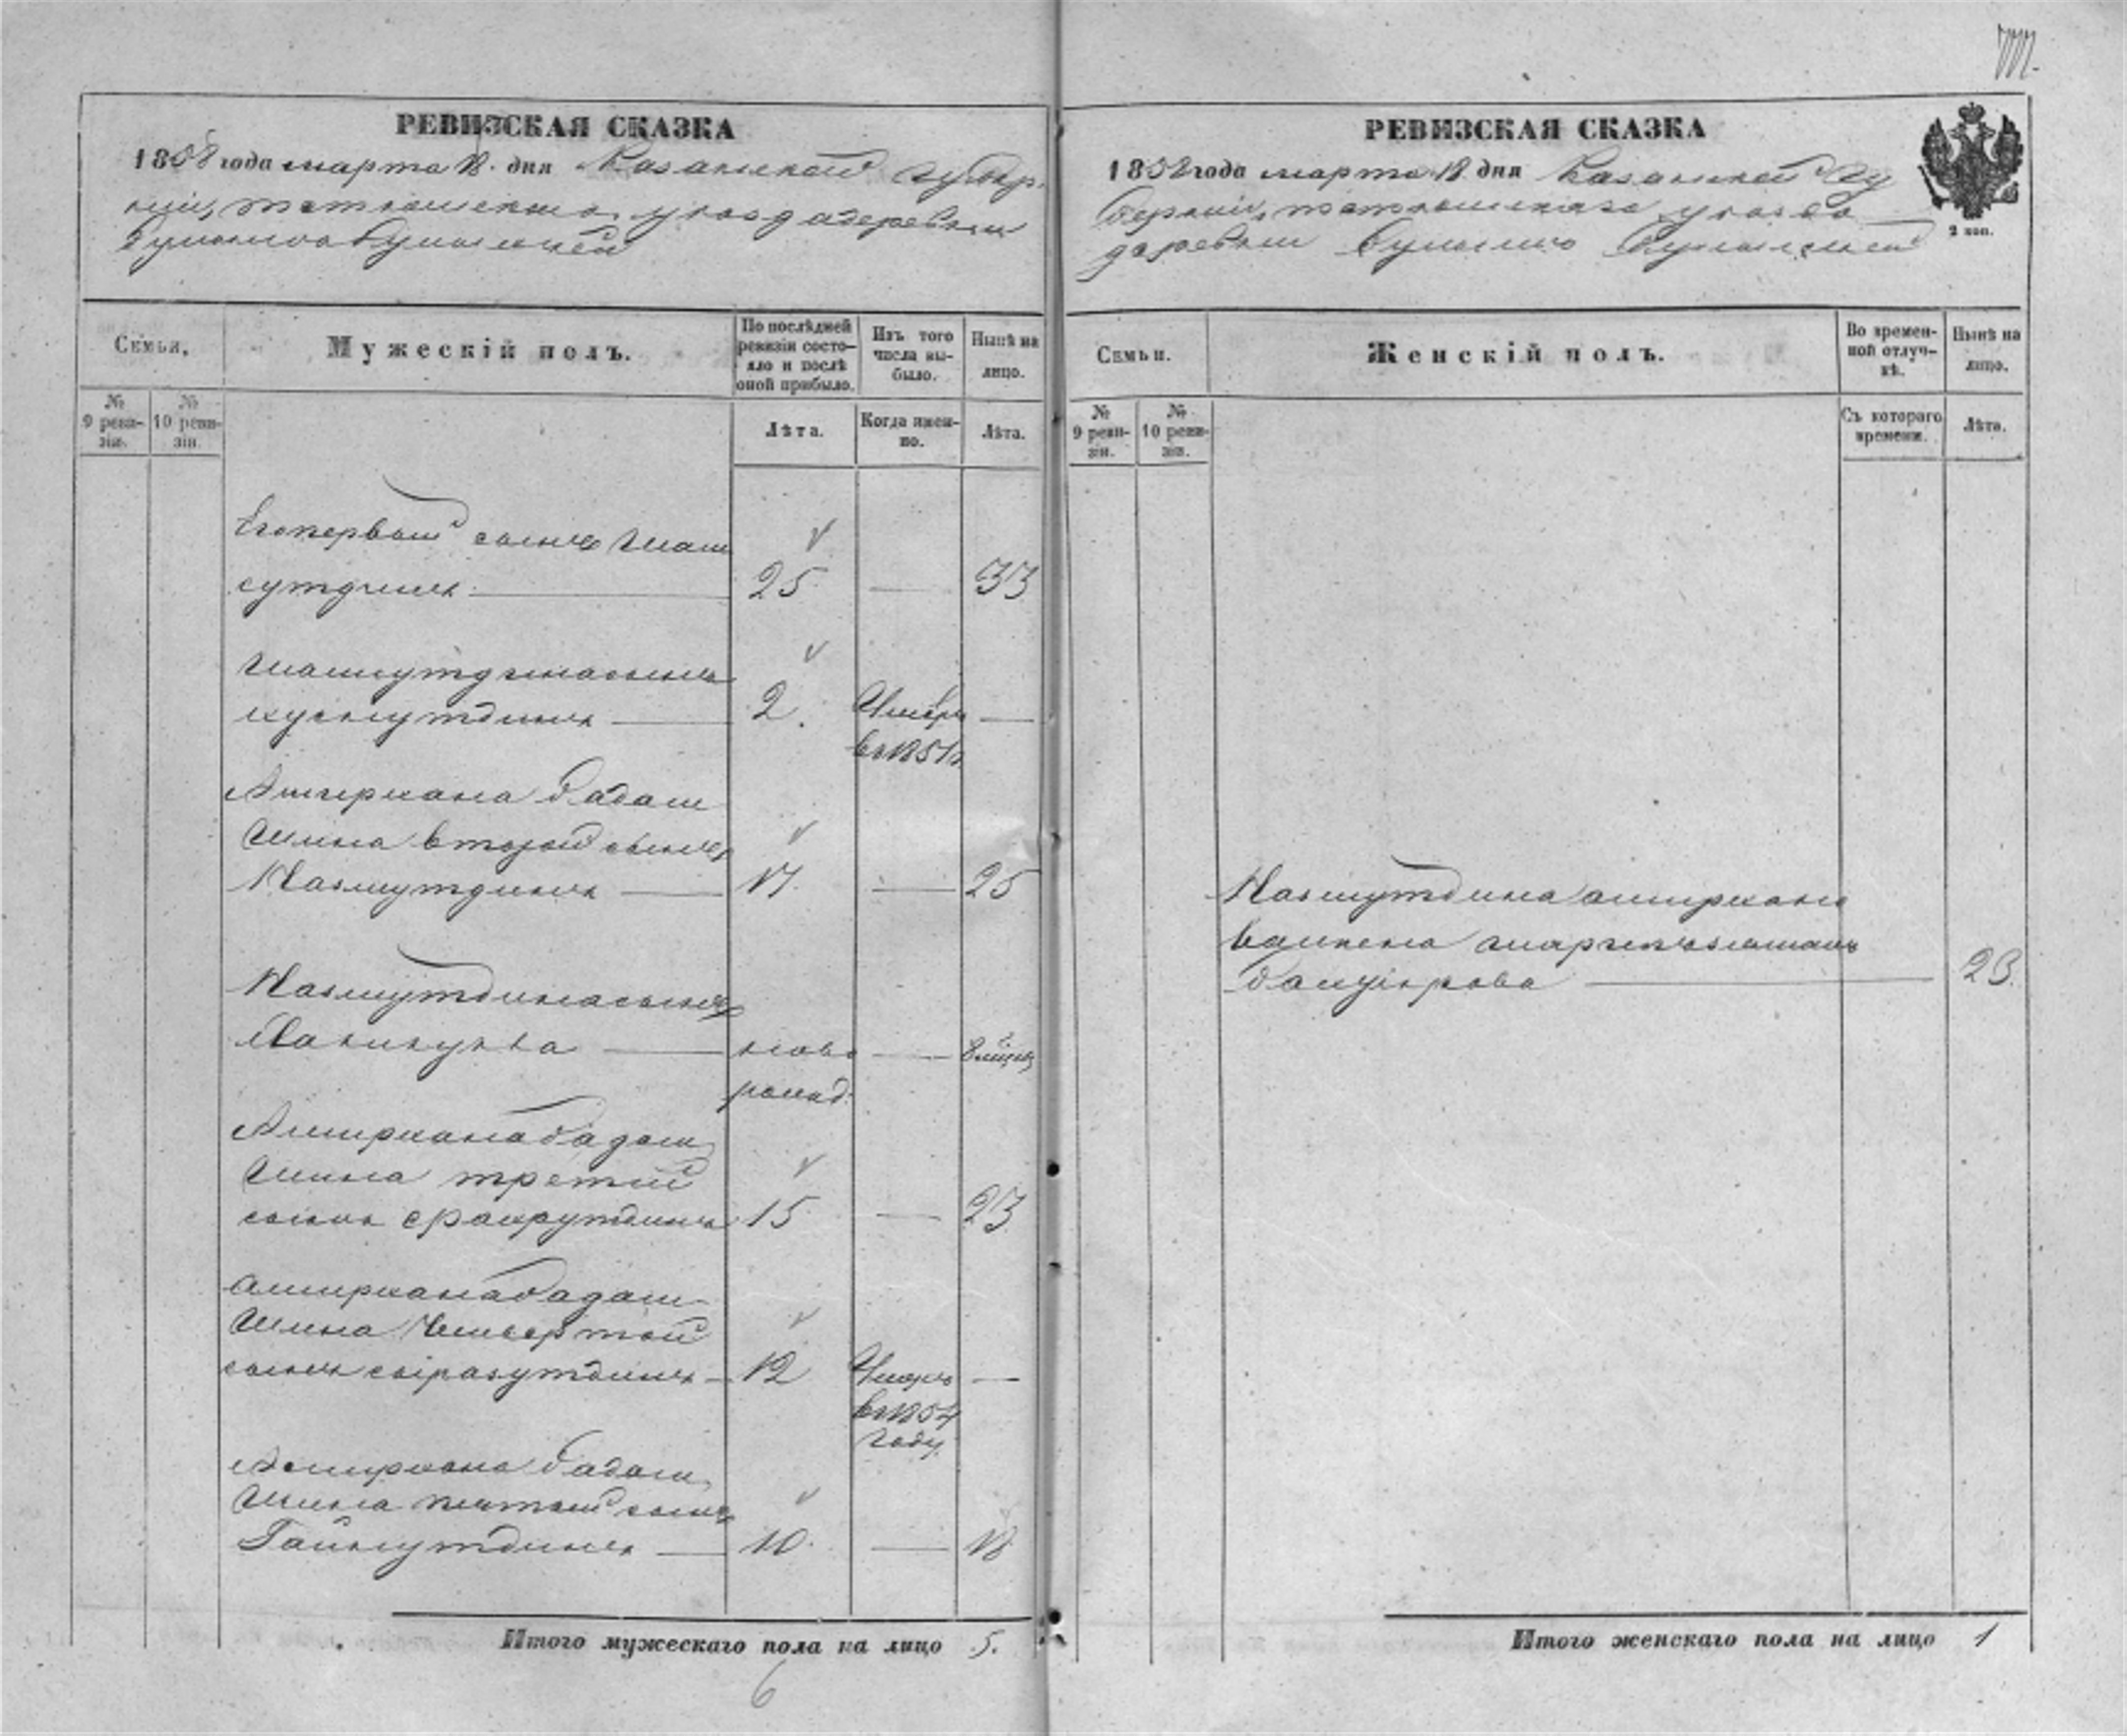 РЕВИЗСКАЯ СКАЗКА
1858 года марта 18 дня Казанской губер
нии, тетюшскаго уезда деревни
Семьи.
Мужескій полъ.
По послѣдней
ревизіи состо-
яло и послѣ
оной прибыло.
Изъ того
числа вы-
было.
Нынѣ на
лицо.
№
9 реви-
зіи.
№
10 реви-
зіи.
Лѣта.
Когда имен-
но.
Лѣта.
Его первый сынъ Шам
сутдинъ 25 — 33
Шамсутдина сынъ
хуснутдинъ 2. Умеръ —
в 1851 г
Амирхана бадам
шина второй сынъ
Назмутдинъ 17 — 25
Назмутдина сынъ
ново — 8 мѣсяц
рожд.
Амирхана бадам
шина третій
сынъ Фахрутдинъ 15 — 23
амирхана бадам
шина Четвертой
сынъ сиразутдинъ 12 Умеръ —
в 1854
году
Амирхана бадам
шина пятый сынъ
Гайнутдинъ 10. — 18
Итого мужескаго пола на лицо 5.
6
РЕВИЗСКАЯ СКАЗКА
1858 года марта 18 дня Казанской гу
берніи, тетюшскаго уезда
деревни
2 коп.
Семьи.
Женскій полъ.
Во времен-
ной отлуч-
кѣ.
Нынѣ на
лицо.
№
9 реви-
зіи.
№
10 реви-
зіи.
Съ котораго
времени.
Лѣта.
Назмутдина амирхано
ва жена
23.
Итого женскаго пола на лицо 1